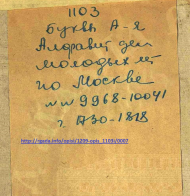 1103
Буквы А-я
Алфавит дел
молодых лет
по Москве
№№ 9968-10041
г. 1730-1818
http://rgada.info/opisi/1209-opis_1103/0002